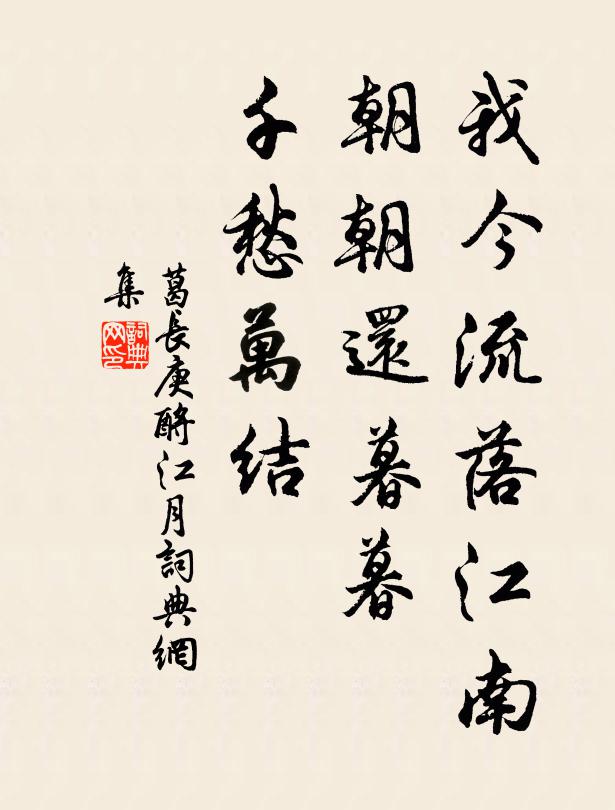 我今流落江南
朝朝還暮暮
千愁萬結
葛長庚酹江月詞典網
集
詞典
网印